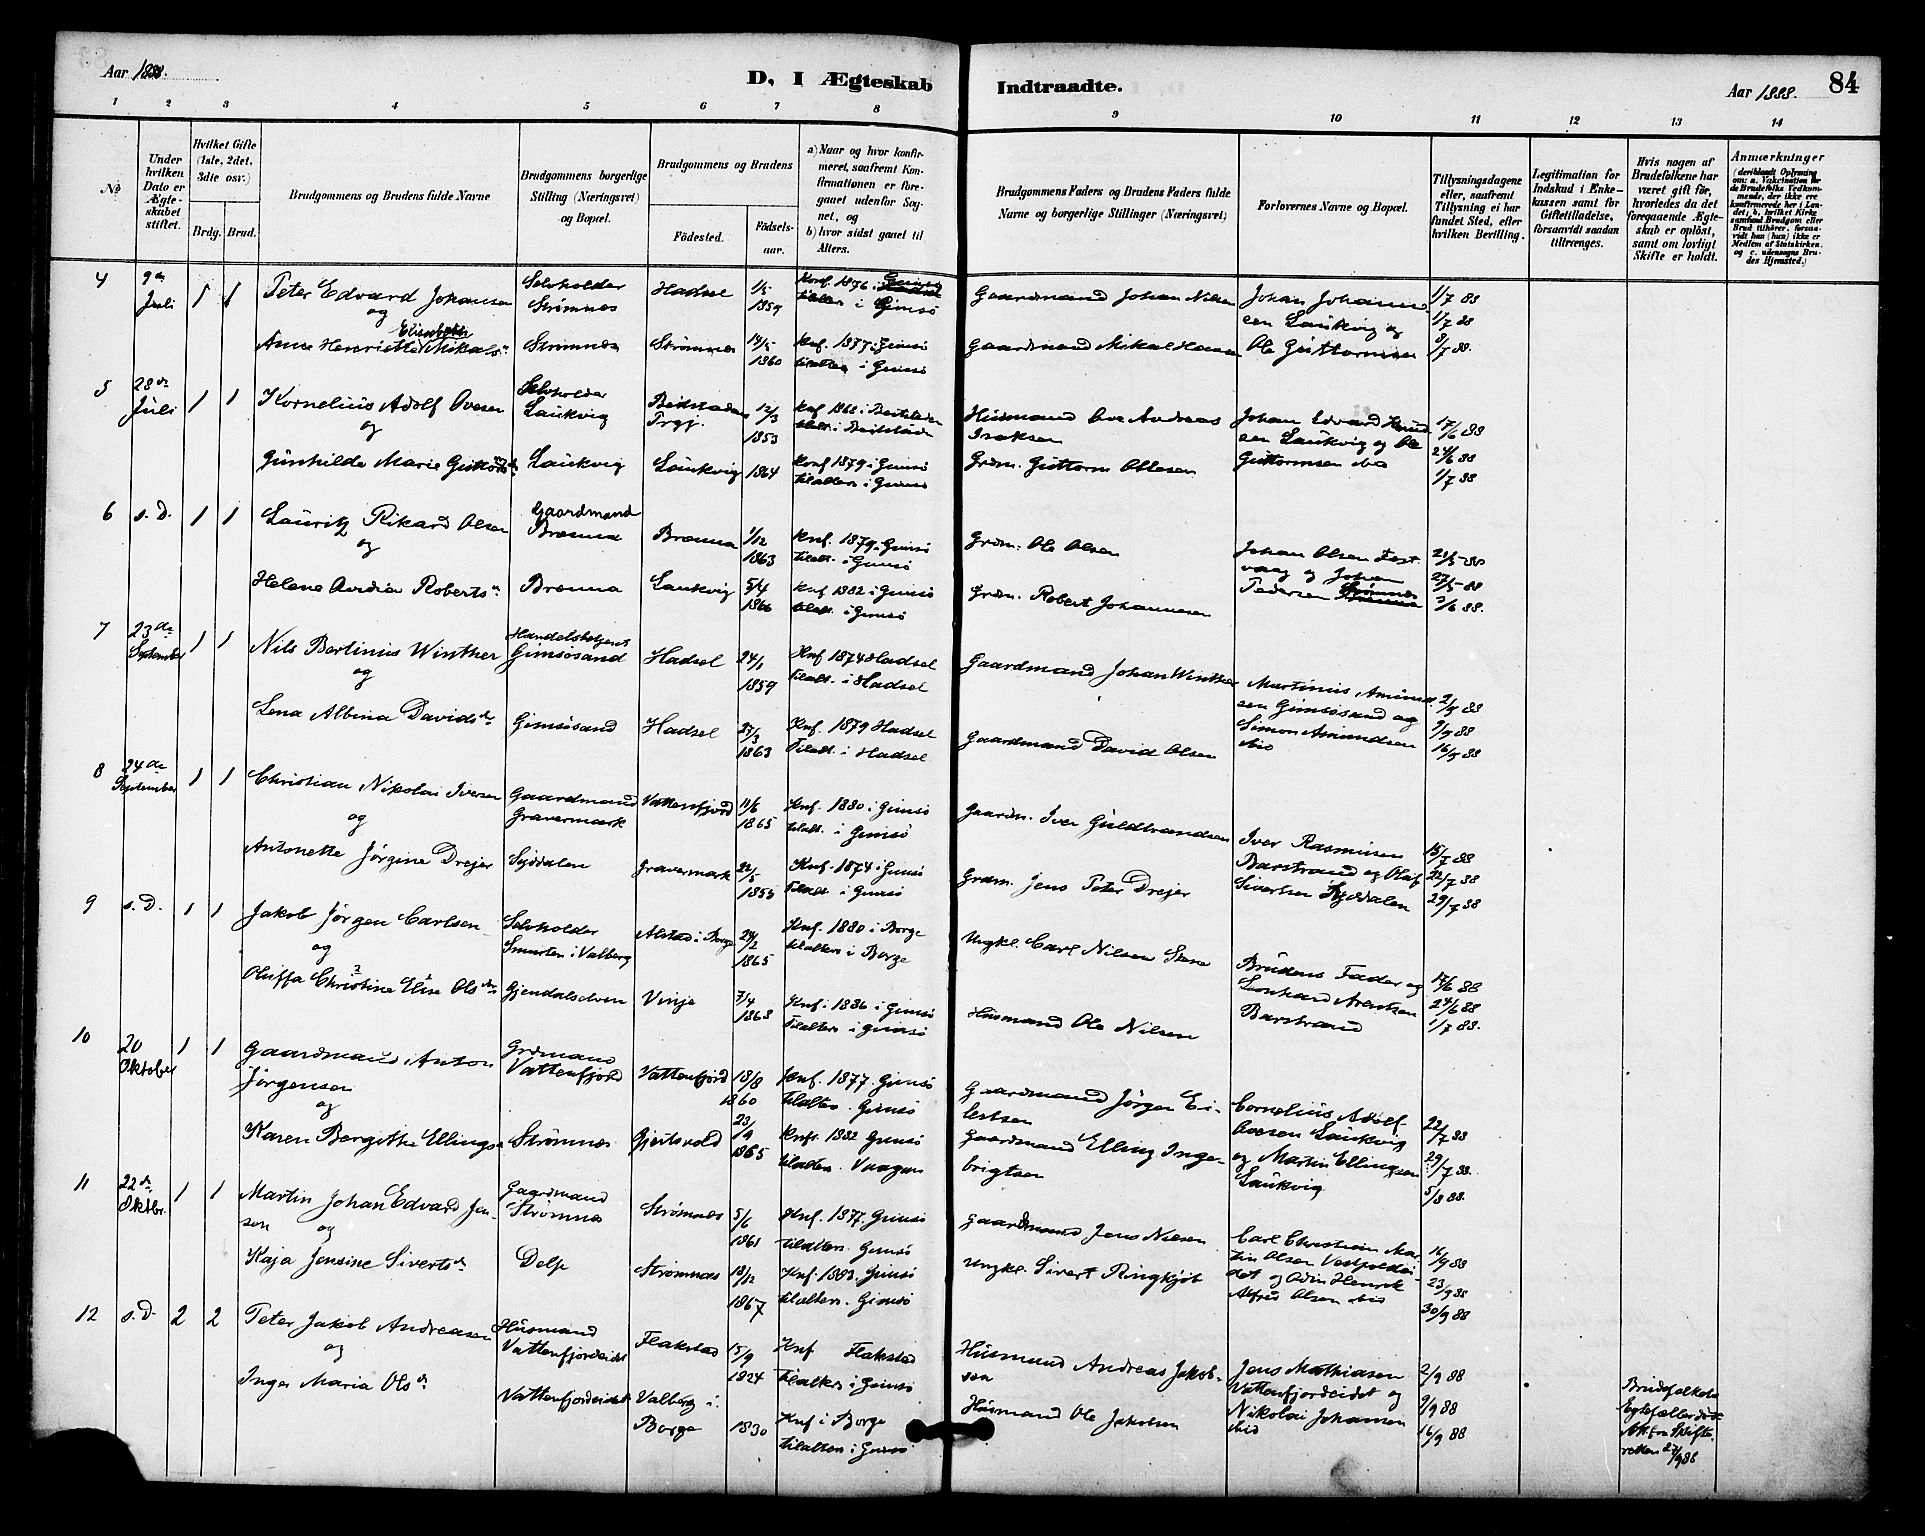 Aar 1888.
D, I Ægteskab
Indtraadte.
Aar 1888.
84
1 2 3 4 5 6 7 8 9 10 11 12 13 14
No
Under hvilken Dato er Ægteskabet stiftet.
Hvilket Gifte (1ste, 2det, 3die osv.)
Brdg. Brud.
Brudgommens og Brudens fulde Navne
Brudgommens borgerlige Stilling (Næringsvei) og Bopæl.
Brudgommens og Brudens
Fødested.
Fødselsaar.
a) Naar og hvor konfirmeret, saafremt Konfirmationen er foregaaet udenfor Sognet, og
b) hvor sidst gaaet til Alters.
Brudgommens Faders og Brudens Faders fulde Navne og borgerlige Stillinger (Næringsvei)
Forlovernes Navne og Bopæl.
Tillysningsdagene eller, saafremt Tillysning ei har fundet Sted, efter hvilken Bevilling.
Legitimation for Indskud i Enkekassen samt for Giftetilladelse, forsaavidt saadan tiltrænges.
Hvis nogen af Brudefolkene har været gift før, hvorledes da det foregaaende Ægteskab er opløst, samt om lovligt Skifte er holdt.
Anmærkninger
4 9de Juli 1 1 Peter Edvard Johansen Selvholder Strømnes Hadsel 1/5 1859 Knf. 1876 Gimsø tilalters i Gimsø Gaardmand Johan Nilsen Johan Johannesen Laukvig og 1/7 88
og
Anne Henriette Elisabeth Mikals. Strømnes Strømnes 1860 Knf. 1877 i Gimsø tilalters i Gimsø Gaardmand Mikal Hansen Ole Guttormsen 8/7 88.
5 28de Juli 1 1 Kornelius Adolf Ovesen Selvholder Laukvig Beitstaden Trgj. 12/3 1853 Knf. 1868 i Beitstaden tilalt. i Beitstaden Husmand Ove Andreas Isaksen Johan Edvard Knudsen Laukvig og Ole 17/6 88
og
Gunhilde Marie Guttormsd. Laukvig Laukvig 1864 Konf. 1879 i Gimsø tilalters i Gimsø Grdm. Guttorm Olesen Guttormsen ibid 24/6 88 1/7 88
6 s. D. 1 1 Lauritz Rikard Olsen Gaardmand Brenna Brenna 1/12 1863 Knf. 1879 Gimsø tilalt. i Gimsø Grdm. Ole Olsen Johan Olsen Festvaag og Johan 27/5 88
og
Helene Ovidia Roberts. Brenna Laukvig 5/4 1866 Knf 1882 i Gimsø tilalt. i Gimsø Grdm. Robert Johannesen Pedersen Strømnes 3/6 88.
7 23de September 1 1 Nils Bertinius Winther Handelsbetjent Gimsøsand Hadsel 24/1 1859 Knf 1874 Hadsel tilalt. i Hadsel Gaardmand Johan Winther Martinius Amundsen Gimsøsand og 2/9 88
og
Lena Albina Davidsdr. Gimsøsand Hadsel 1863 Knf. 1879 Hadsel Tilalt. i Hadsel Gaardmand David Olsen Simon Amundsen ibid 9/9 88 16/9 88
8 24de September 1 1 Christian Nikolai Iversen Gaardmand Gravermark Vattenfjord 11/6 1865 Knf. 1880 i Gimsø tilalt. i Gimsø Gaardm. Iver Guldbrandsen Iver Rasmussen 15/7 88
og
Antonette Jørgine Drejer Syddalen Gravermark 22/5 1855 Knf. 1874 i Gimsø Tilalt i Gimsø Grdm. Jens Peter Drejer Barstrand og Oluf Sivertsen Syddalen 22/7 88 29/7 88
9 s. D. 1 1 Jakob Jørgen Carlsen Selvholder Smorten i Valberg Alstad i Borge 24/2 1865 Knf. 1880 i Borge tilalters i Borge Ungkl. Carl Nilsen Stene Brudens Fader og 17/6 88
og
Oluffa Christine Elise Olsdr. Gjendalselven Vinje 7/4 1868 Knf. 1886 i Gimsø Tilalters i Gimsø Husmand Ole Nilsen Leonhard Arentsen Barstrand 24/6 88 1/7 88.
10 20 Oktober 1 1 Gaardmand Anton Jørgensen Grdmand Vattenfjord Vattenfjord 18/8 1860 Knf. 1877. Gimsø tilalters. Gimsø Gaardmand Jørgen Eilertsen Cornelius Adolf Ovesen Laukvig 22/7 88
og
Karen Bergitte Ellingsd. Strømnes Gjertsvold 23/9 1865 Knfr. 1882 Gimsø tilalters. Vaagan Gaardmand Elling Ingebrigtsen og Martin Ellingsen Laukvig 29/7 88. 5/8 88.
11 22de Oktbr. 1 1 Martin Johan Edvard Jensen Gaardmand Strømnes Strømnes 5/6 1861 Knf. 1877. Gimsø tilalters. Gimsø Gaardmand Jens Nilsen Carl Christian Martin Olsen Vestpolleidet 16/9 88
og
Kaja Jensine Sivertsdr Delp Strømnes 18/12 1867 Knf. 1883. Gimsø tilalters. Gimsø Ungkl. Sivert Ringkjøb og Odin Henrik Alfred Olsen ibid 23/9 88 30/9 88
12 s. D. 2 2 Peter Jakob Andreasen Husmand Vattenfjordeidet Flakstad 15/9 1824 Knf Flakstad Tilalters i Gimsø Husmand Andreas Jakobsen Jens Mathiasen Vattenfjordeidet og 2/9 88
og
Inger Maria Olsdr Vattenfjordeidet Valberg i Borge 1830 Knf i Borge tilalters i Gimsø Husmand Ole Jakobsen Nikolai Johansen ibid 9/9 88 16/9 88
Brudefolkets Egtefæller døde Att. fra Skifteretten